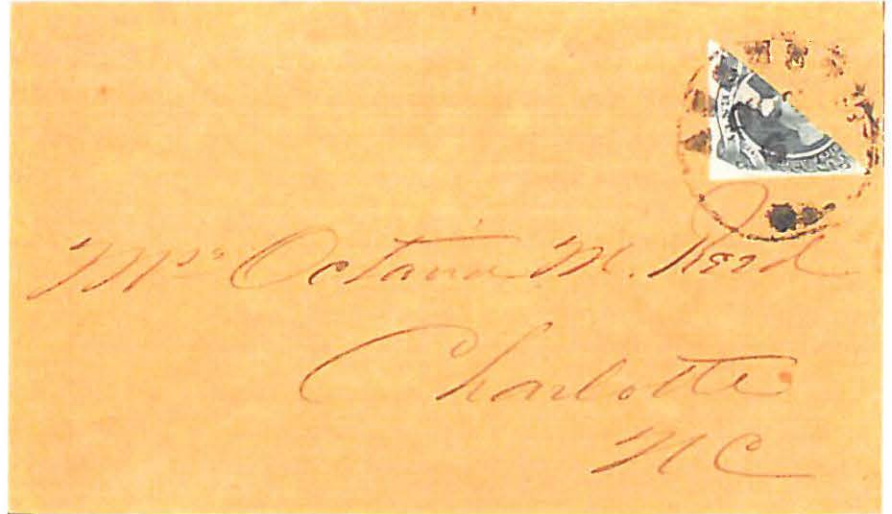 Mrs Octavia M. Reid
Charlotte
NC